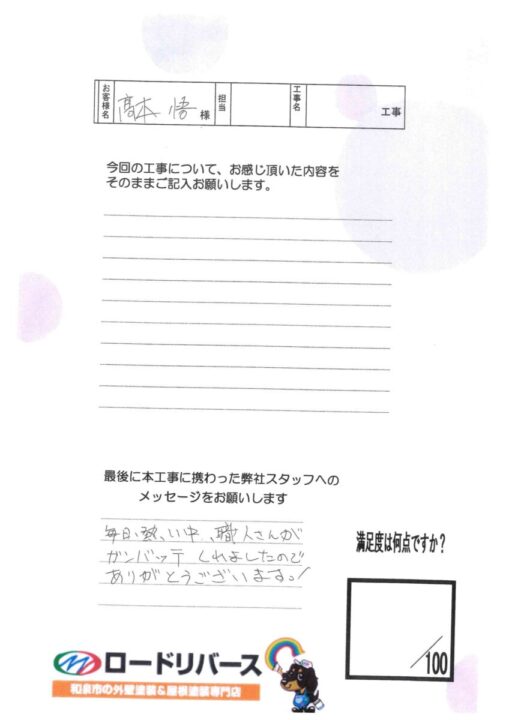 お客様名 髙本 悟 様 担当 工事名 工事
今回の工事について、お感じ頂いた内容を
そのままご記入お願いします。
最後に本工事に携わった弊社スタッフへの
メッセージをお願いします
毎日、熱い中、職人さんが
ガンバッテくれましたので
ありがとうございます。!
満足度は何点ですか?
/100
ロードリバース
和泉市の外壁塗装&屋根塗装専門店